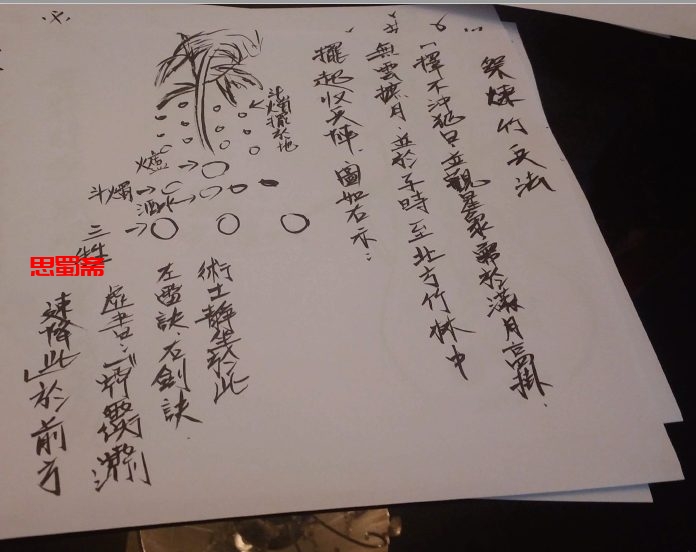 祭煉竹兵法
擇不沖犯日並觀星象需於滿月高掛,
無雲遮月,並於子時至北方竹林中
擺起收兵陣,圖如右示:
斗燭插於地
爐
斗燭
酒水
三牲
術士靜坐於此
左雷訣,右劍訣
虛書:
速降此」於前方
思蜀斋